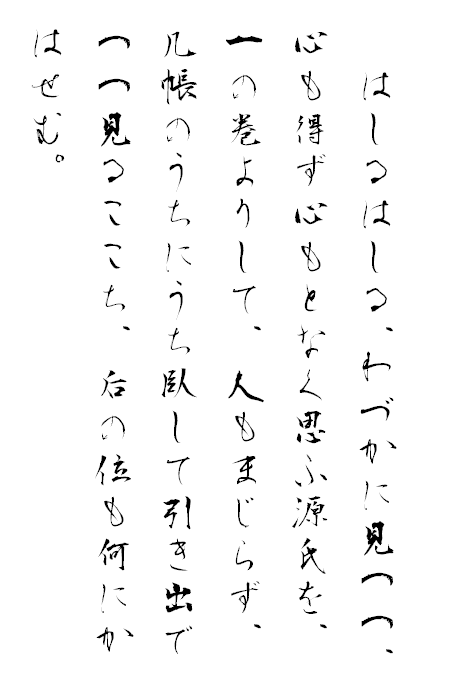 はしるはしる、わづかに見つつ、
心も得ず心もとなく思ふ源氏を、
一の巻よりして、人もまじらず、
几帳のうちにうち臥して引き出で
つつ見るここち、后の位も何にか
はせむ。